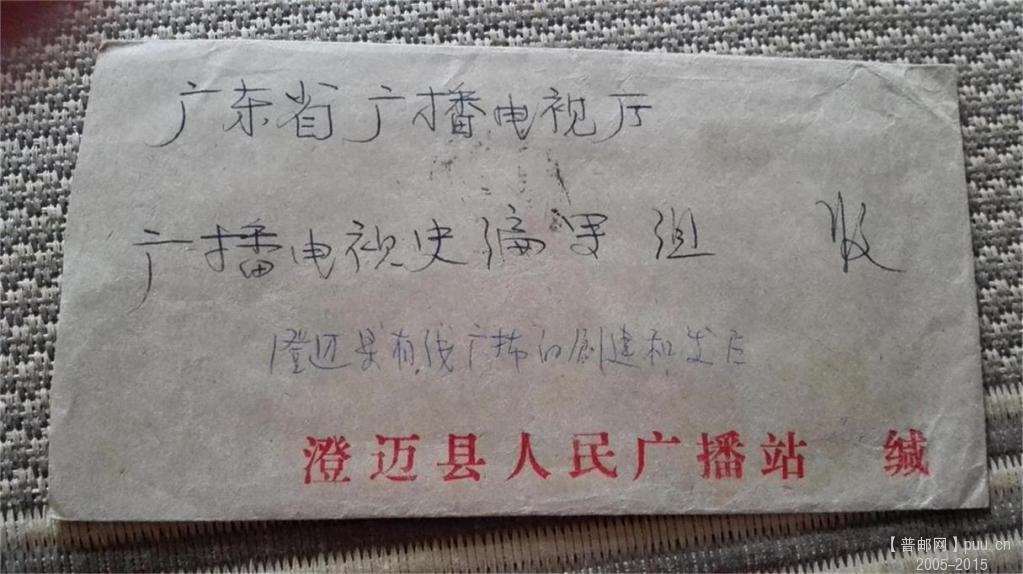 广东省广播电视厅
广播电视史编写组 收
澄迈县有线广播的创建和发展
澄迈县人民广播站 缄
【普邮网】puu.cn
2005-2015